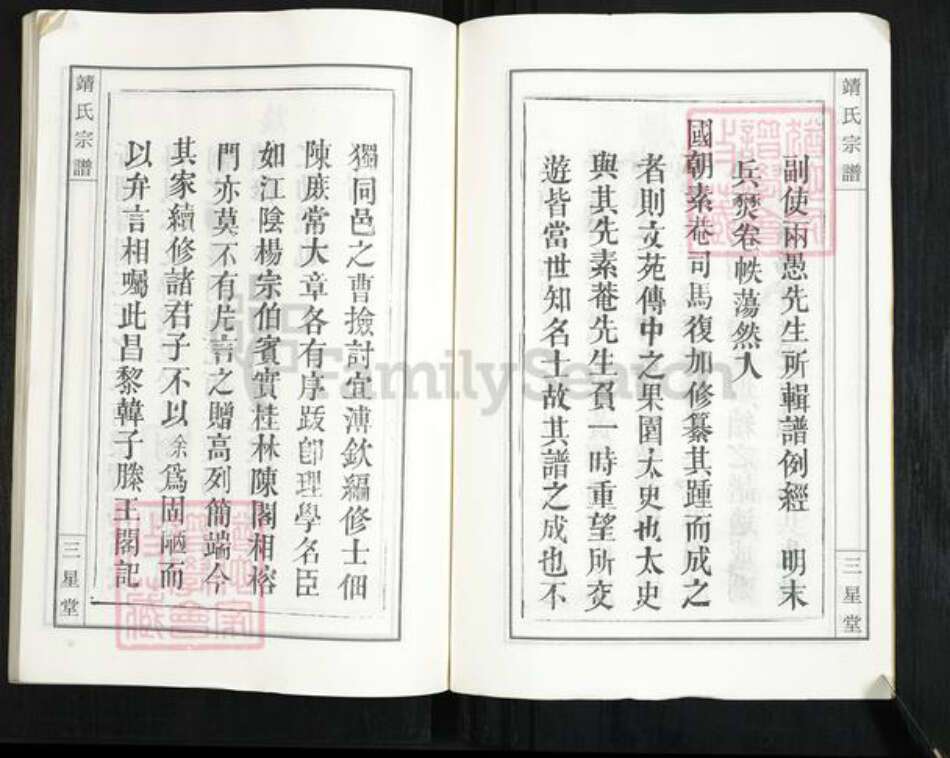 靖氏宗譜
副使兩愚先生所輯譜例經 明末
兵燹卷帙蕩然入
國朝素巷司馬復加修纂其踵而成之
者則文苑傳中之果園太史也太史
與其先素菴先生負一時重望所交
遊皆當世知名士故其譜之成也不
三星堂
靖氏宗譜
獨同邑之曹撿討宜溥欽編修士佃
陳庶常大章各有序跋卽理學名臣
如江陰楊宗伯賓實桂林陳閣相榕
門亦莫不有片言之贈高列簡端今
其家續修諸君子不以余爲固陋而
以弁言相囑此昌黎韓子滕王閣記
三星堂
FamilySearch